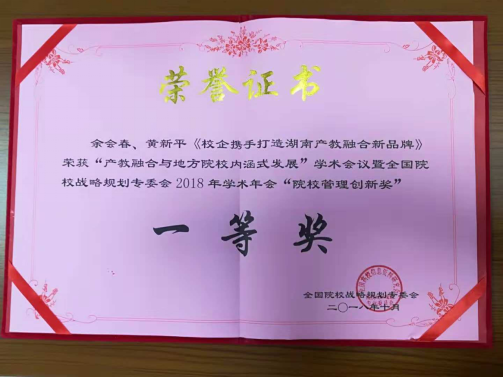 荣誉证书
余会春、黄新平《校企携手打造湖南产教融合新品牌》
荣获“产教融合与地方院校内涵式发展”学术会议暨全国院
校战略规划专委会2018年学术年会“院校管理创新奖”
一等奖
全国院校战略规划专委会
二〇一八年十月